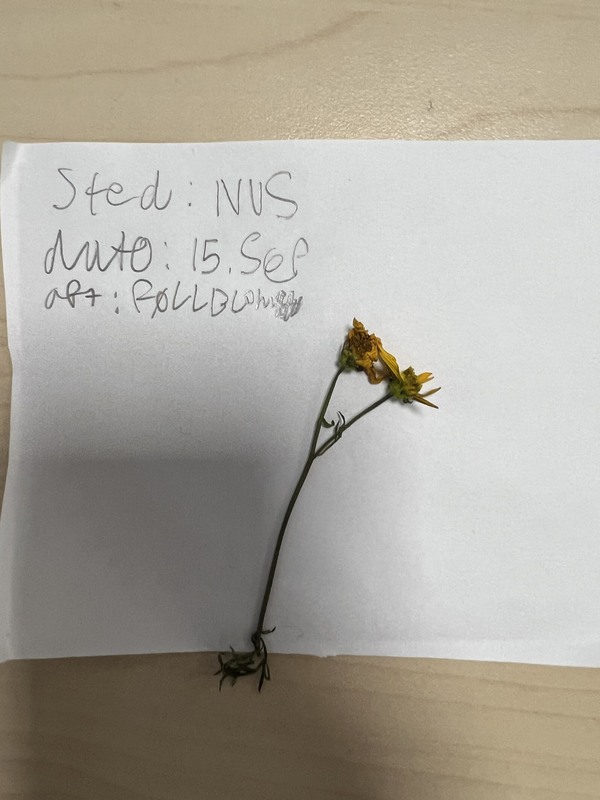 Sted: NVS
dato: 15. Sep
art: